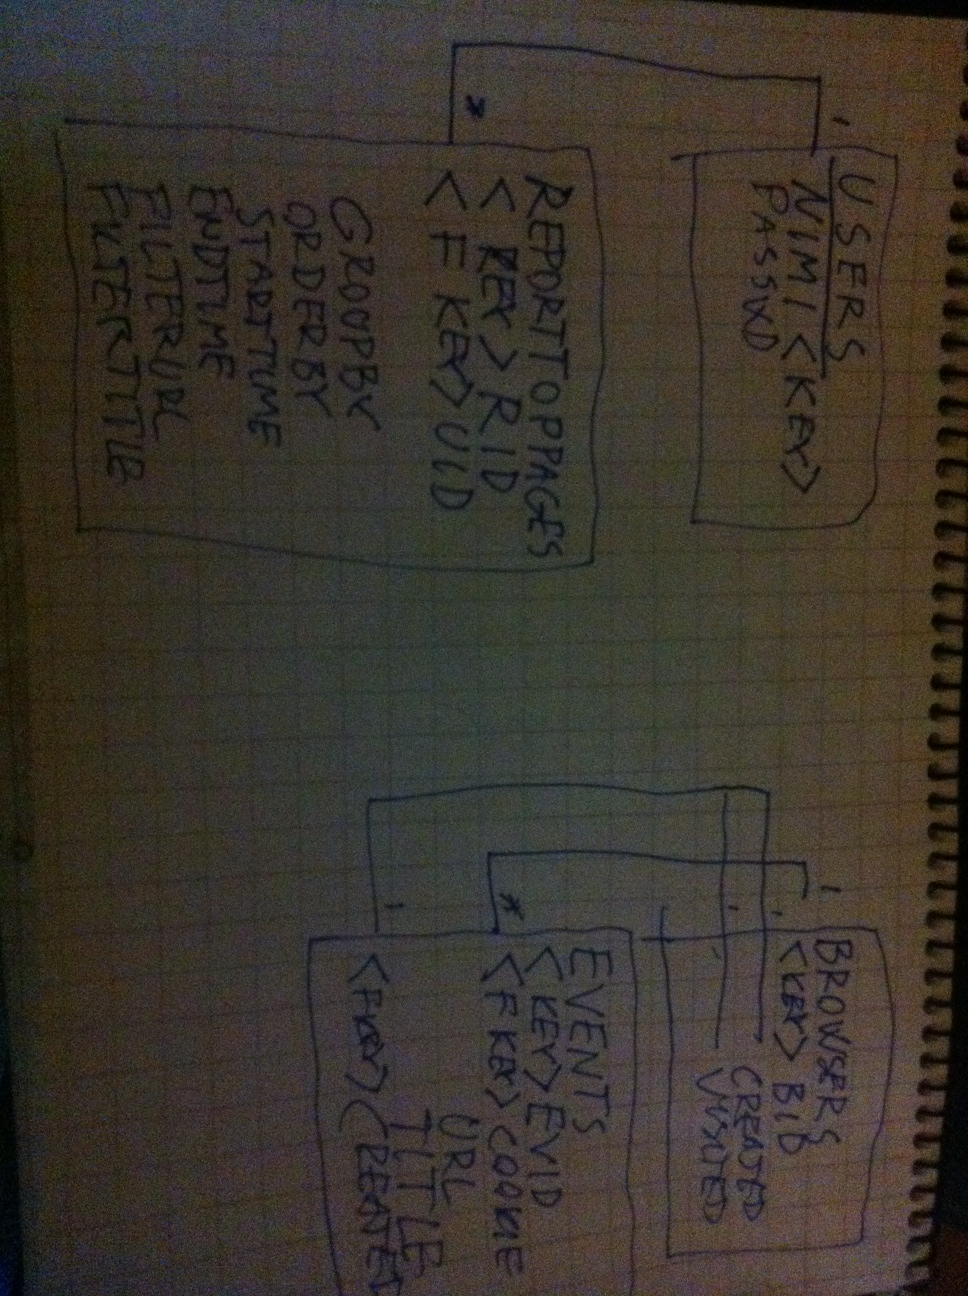 1
USERS
NIMI <KEY>
PASSWD
*
REPORTTOPPAGES
<KEY> RID
<F KEY> UID
GROUPBY
ORDERBY
STARTTIME
ENDTIME
FILTERURL
FILTERTITLE
1
BROWSERS
<KEY> BID
CREATED
VISITED
*
EVENTS
<KEY> EVID
<F KEY> COOKIE
URL
TITLE
1
<FKEY> CREATED